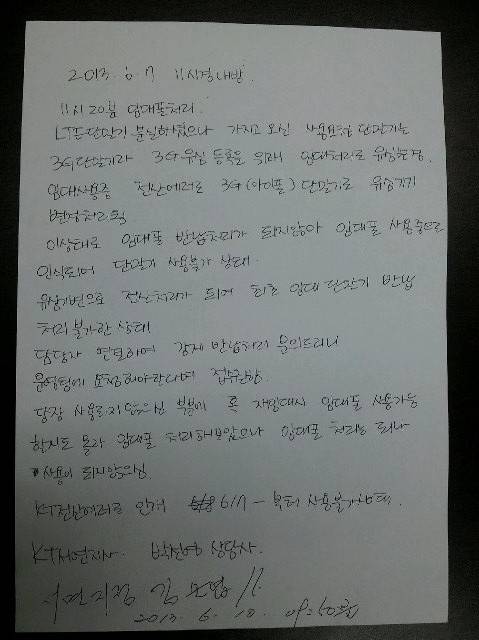 2013. 6. 7 11시경 내방.
11시 20분 임대폰처리.
LTE단말기 분실하셨으나 가지고 오신 사용요청 단말기는
3G단말기라 3G유심 등록을 위해 임대처리로 유심
임대사용중 전산에러로 3G(아이폰) 단말기로 유심기기
변경처리
이상태로 임대폰 반납처리가 되지않아 임대폰 사용중으로
인식되며 단말기 사용불가 상태.
유심기변으로 전산처리가 되어 최초 임대 단말기 반납
처리 불가한 상태
담당자 연결하여 강제 반납처리 문의드리니
운영팀에 요청해야한다며 접수
당장 사용 부분에 혹 재임대시 임대폰 사용가능
할지도 몰라 임대폰 처리해보았으나 임대폰 처리는 되나
사용이 되지않으심.
KT전산에러로 인해 6/7 - 부터 사용불가상태.
KT서면지사. 상담사.
서면지점 김
2013. 6. 10.